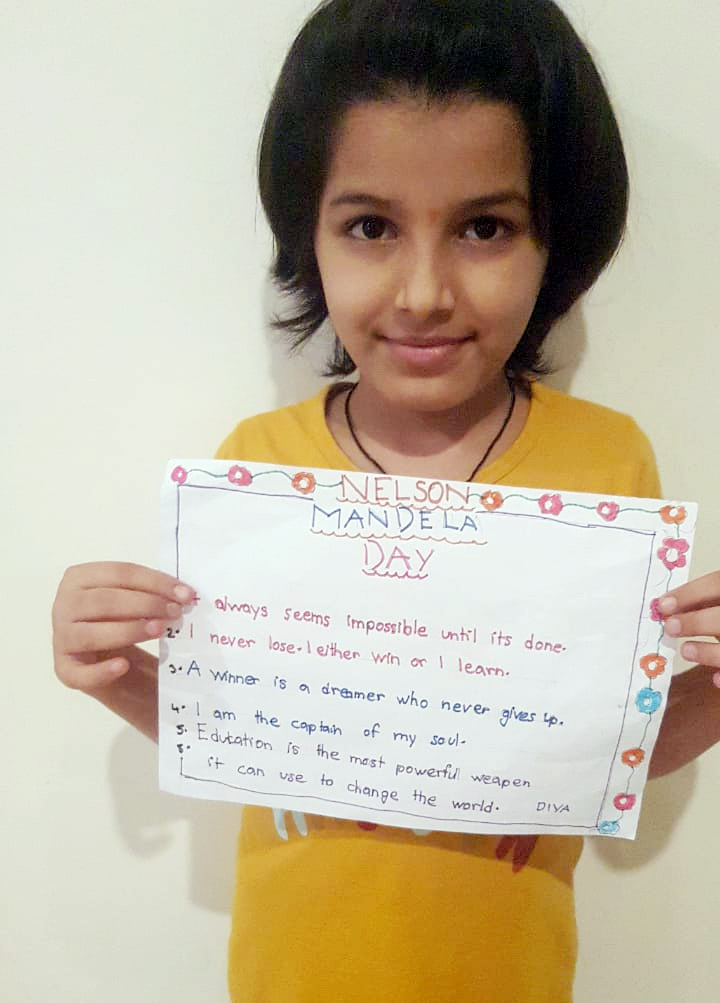 NELSON
MANDELA
DAY
always seems impossible until its done.
2. I never lose. I either win or I learn.
3. A winner is a dreamer who never gives up.
4. I am the captain of my soul.
5. Education is the most powerful weapen
it can use to change the world. DIYA